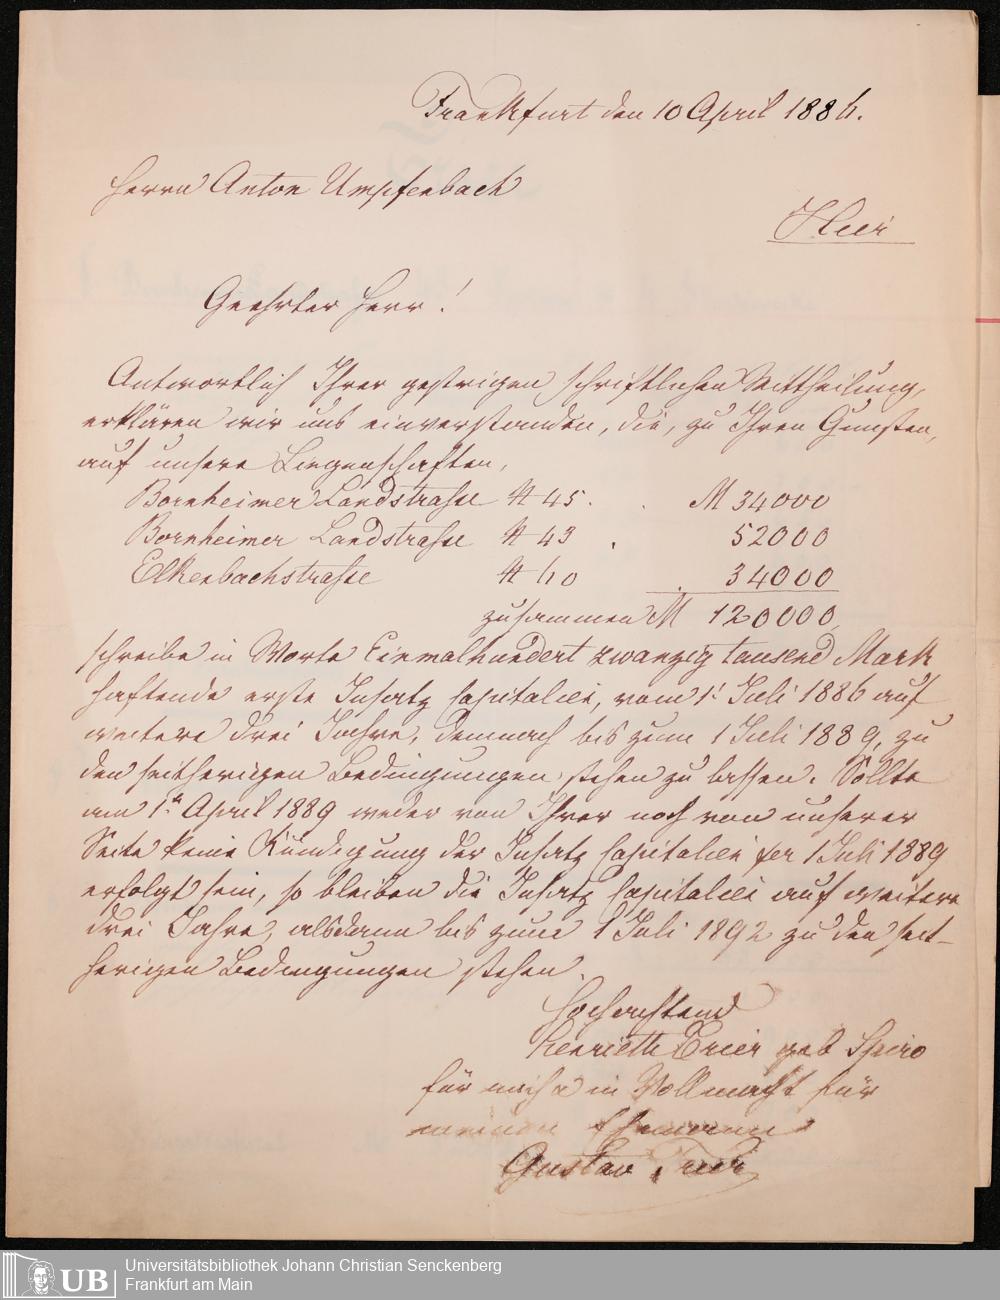 Frankfurt den 10 April 1886.
Herrn Anton Umpfenbach
Hier
Geehrter Herr!
Antwortlich Ihrer gestrigen schriftlichen Mittheilung,
erklären wir uns einverstanden, die, zu Ihren Gunsten,
auf unsere Liegenschaften,
Bornheimer Landstraße № 45 . . M 34000
Bornheimer Landstraße № 43 . 52000
Elkenbachstraße № 10 . 34000
zusammen M 120000
schreibe in Worte Einmalhundert zwanzig tausend Mark
haftende erste Insatz Capitalien, vom 1t Juli 1886 auf
weitere drei Jahre, demnach bis zum 1 Juli 1889, zu
den seitherigen Bedingungen stehen zu lassen. Sollte
am 1n April 1889 weder von Ihrer noch von unserer
Seite keine Kündigung der Insatz Capitalien per 1 Juli 1889
erfolgt sein, so bleiben die Insatz Capitalien auf weitere
drei Jahre, alsdann bis zum 1 Juli 1892 zu den seit-
herigen Bedingungen stehen.
Hochachtend
Henriette Trier geb Spiro
für mich & in Vollmacht für
meinen Ehemann
Gustav Trier
UB Universitätsbibliothek Johann Christian Senckenberg
Frankfurt am Main